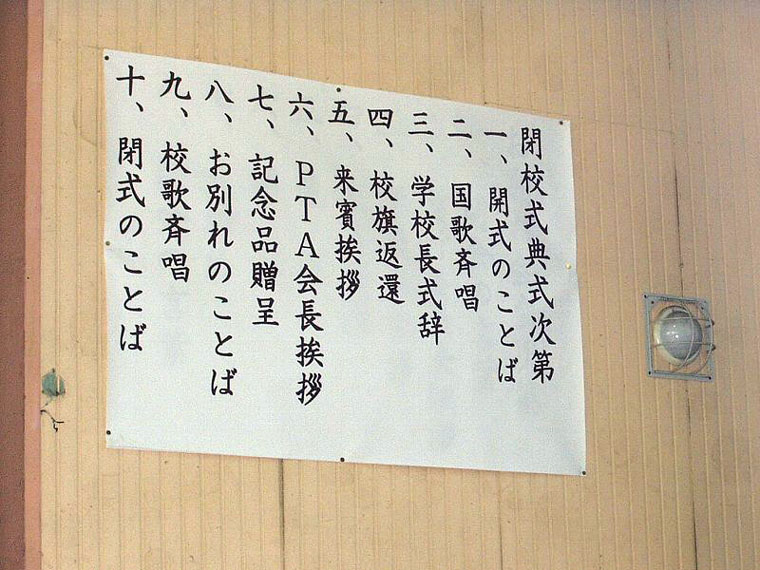 閉校式典式次第
一、開式のことば
二、国歌斉唱
三、学校長式辞
四、校旗返還
五、来賓挨拶
六、PTA会長挨拶
七、記念品贈呈
八、お別れのことば
九、校歌斉唱
十、閉式のことば